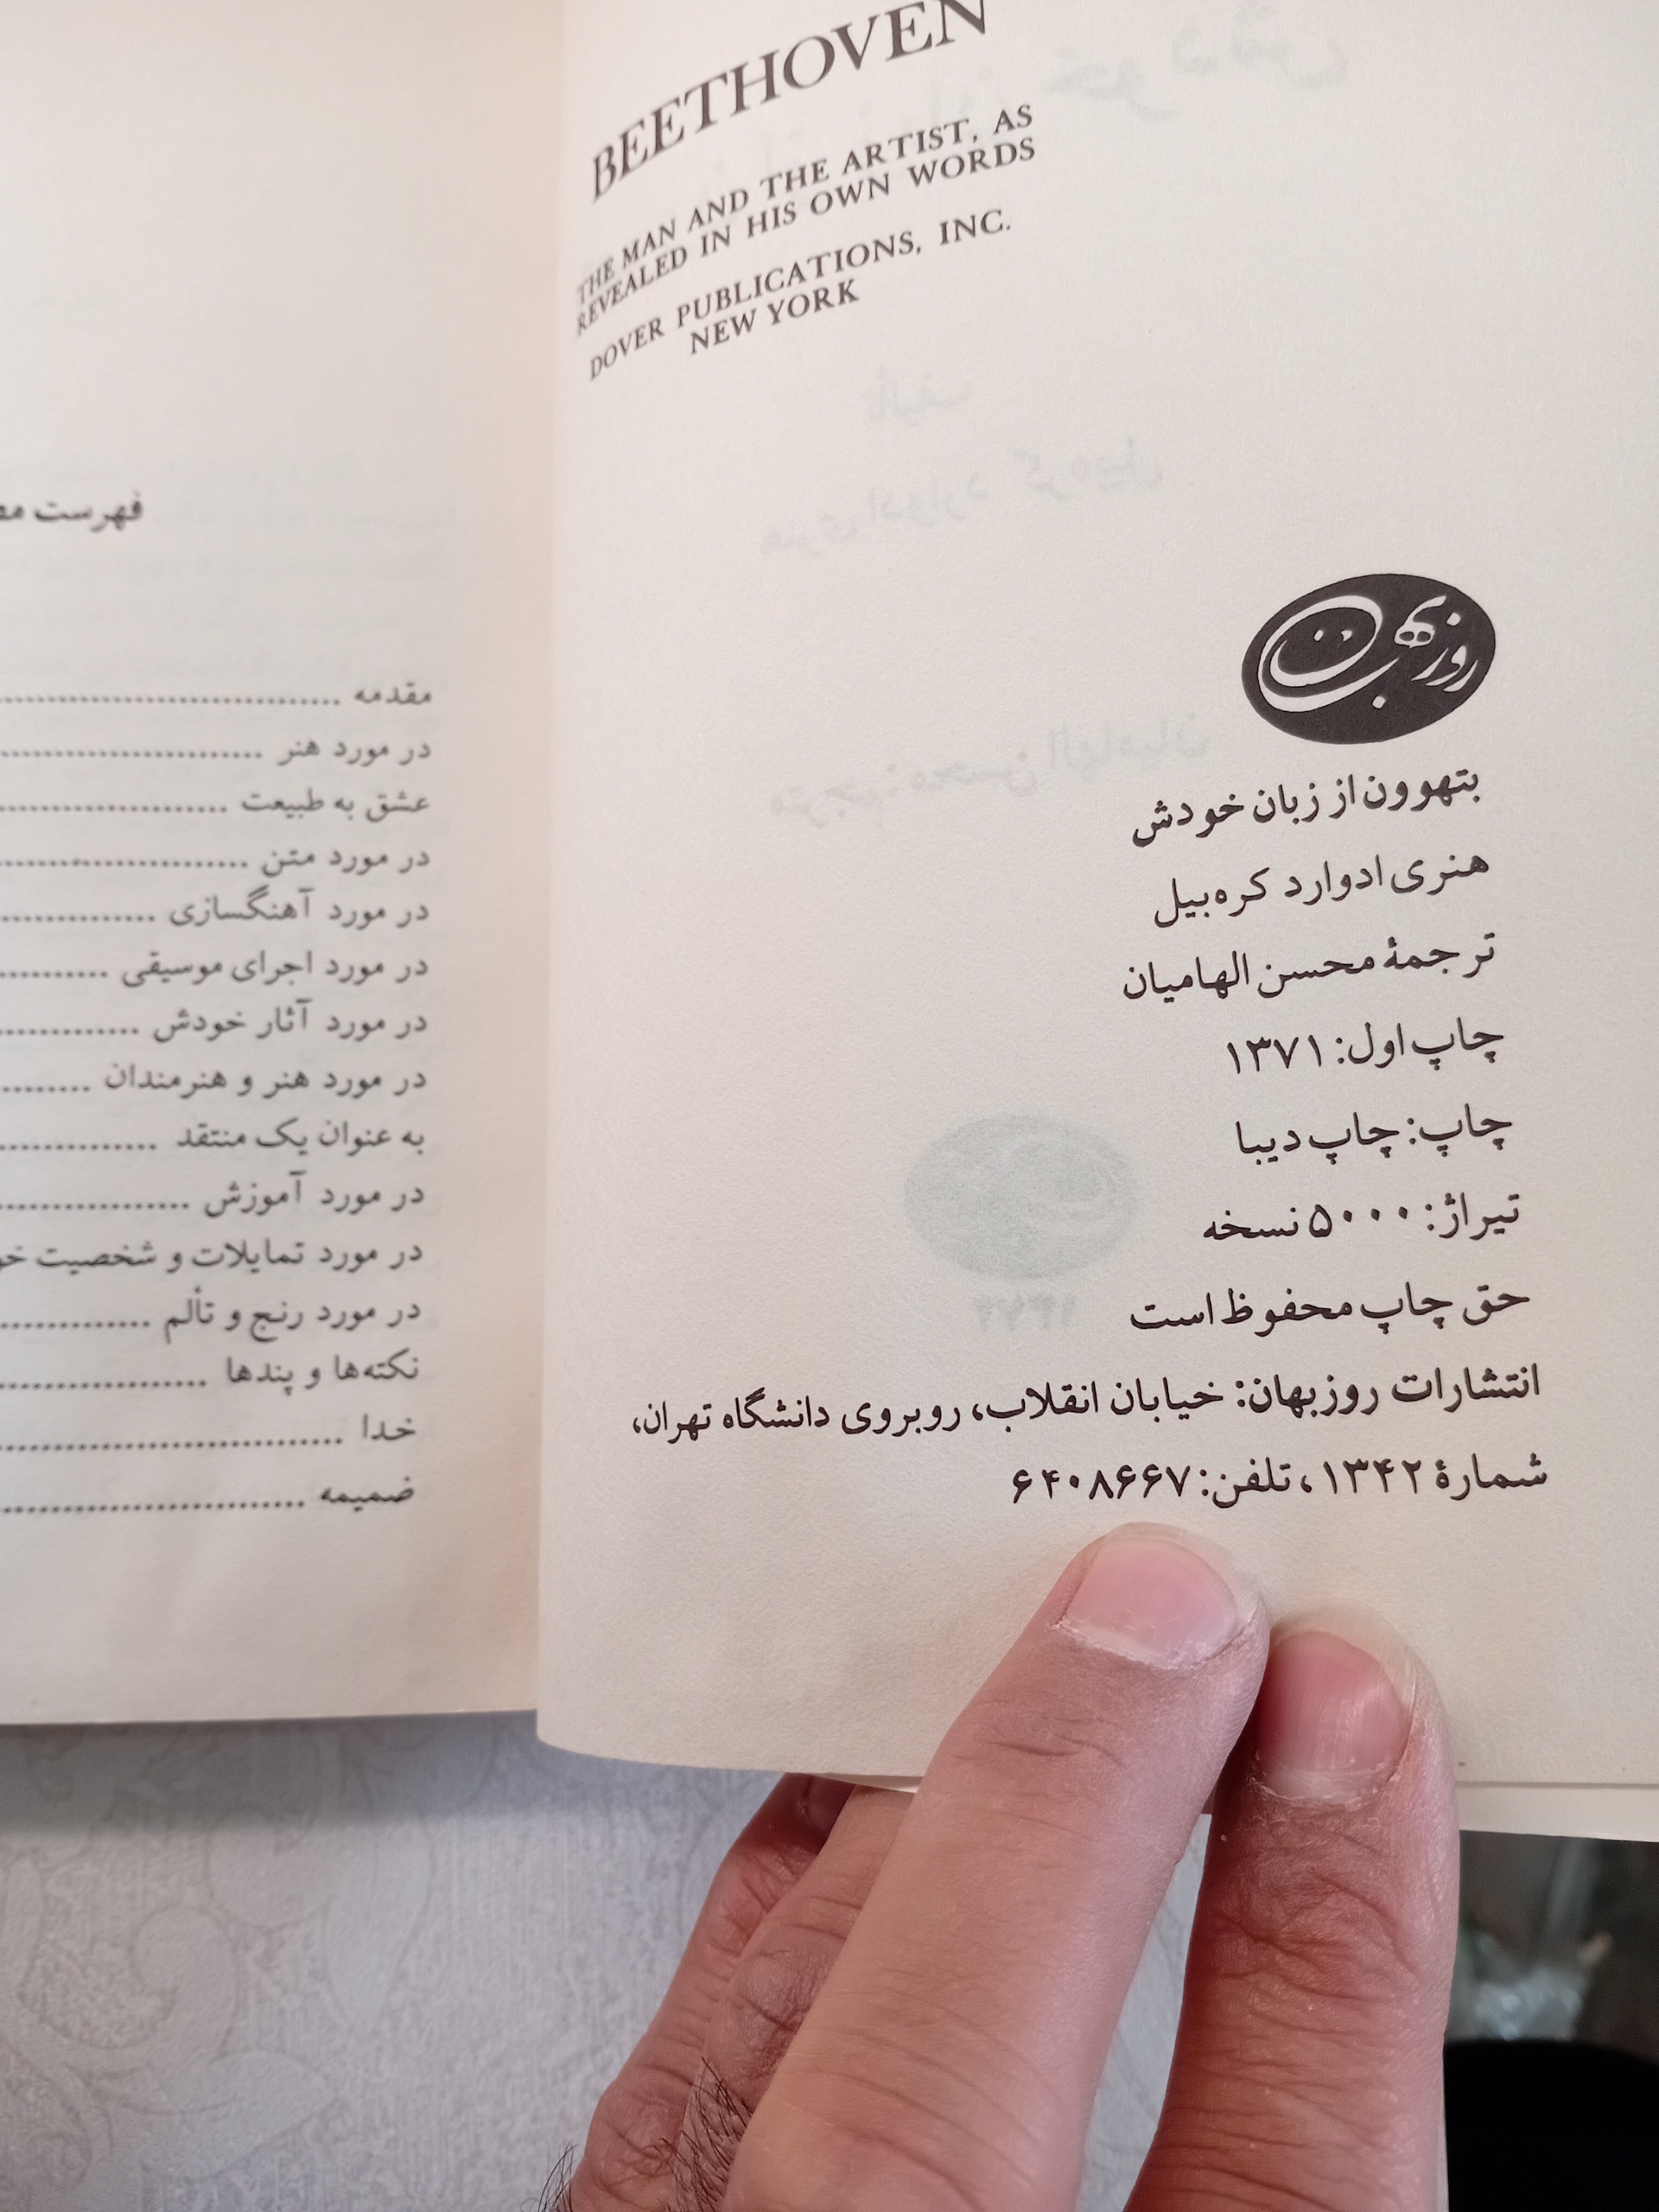 BEETHOVEN
THE MAN AND THE ARTIST, AS
REVEALED IN HIS OWN WORDS
DOVER PUBLICATIONS, INC.
NEW YORK
روزبهان
بتهوون از زبان خودش
هنری ادوارد کره‌بیل
ترجمهٔ محسن الهامیان
چاپ اول: ۱۳۷۱
چاپ: چاپ دیبا
تیراژ: ۵۰۰۰ نسخه
حق چاپ محفوظ است
انتشارات روزبهان: خیابان انقلاب، روبروی دانشگاه تهران،
شمارهٔ ۱۳۴۲، تلفن: ۶۴۰۸۶۶۷
فهرست
مقدمه ................................
در مورد هنر ..........................
عشق به طبیعت ......................
در مورد متن ........................
در مورد آهنگسازی ...............
در مورد اجرای موسیقی ..........
در مورد آثار خودش .............
در مورد هنر و هنرمندان .........
به عنوان یک منتقد ...............
در مورد آموزش ..................
در مورد تمایلات و شخصیت
در مورد رنج و تألم ...............
نکته‌ها و پندها ....................
خدا ................................
ضمیمه ............................